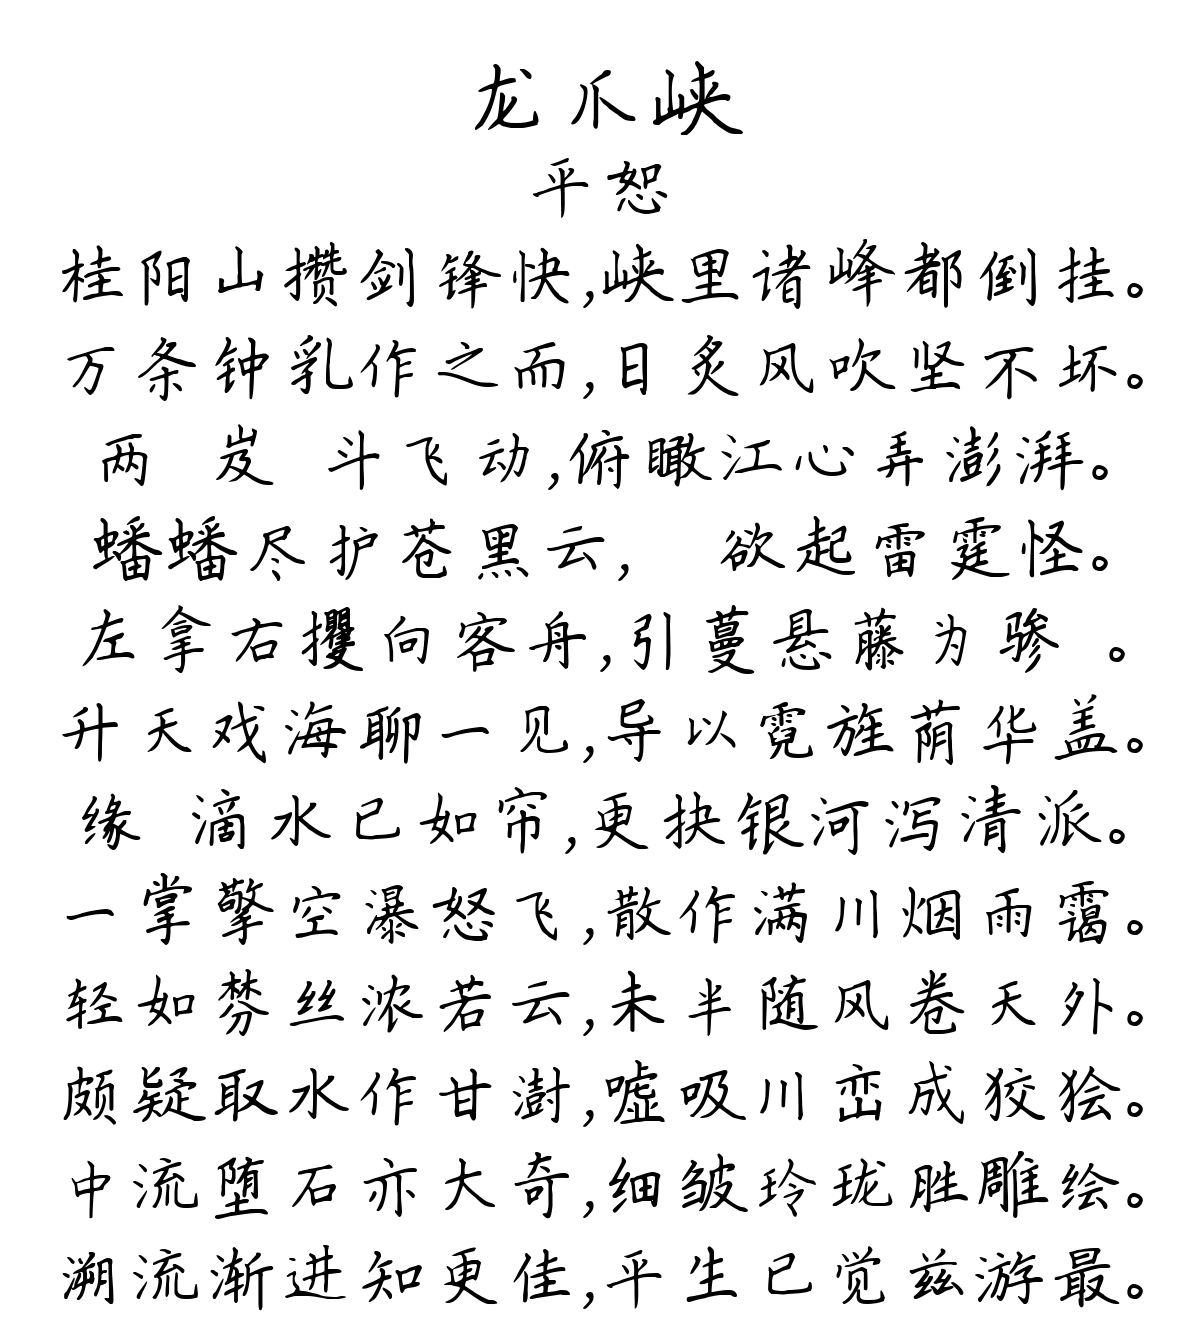 龙爪峡
平恕
桂阳山攒剑锋快,峡里诸峰都倒挂。
万条钟乳作之而,日炙风吹坚不坏。
两 岌 斗飞动,俯瞰江心弄澎湃。
蟠蟠尽护苍黑云, 欲起雷霆怪。
左拿右攫向客舟,引蔓悬藤为骖 。
升天戏海聊一见,导以霓旌荫华盖。
缘 滴水已如帘,更抉银河泻清派。
一掌擎空瀑怒飞,散作满川烟雨霭。
轻如棼丝浓若云,未半随风卷天外。
颇疑取水作甘澍,嘘吸川峦成狡狯。
中流堕石亦大奇,细皱玲珑胜雕绘。
溯流渐进知更佳,平生已觉兹游最。